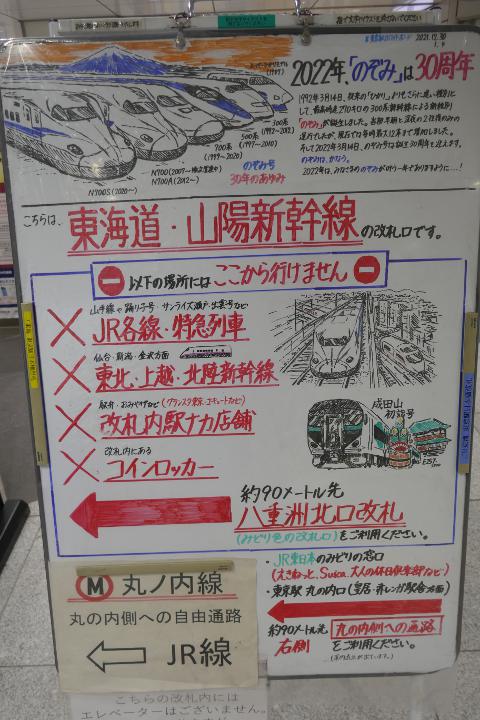 2021.12.30
2022年、「のぞみ」は30周年
1992年3月14日、従来の「ひかり」よりもさらに速い種別と
して、最高時速270キロの300系新幹線による新種別
「のぞみ」が誕生しました。
そして2022年3月14日、のぞみ号は誕生30周年を迎えます。
のぞみは、かなう。
300系
(1992~2012)
500系
(1997~2010)
700系
(1999~2020)
N700(2007~
N700A(2012~)
N700S(2020~)
のぞみ号
30年のあゆみ
こちらは、東海道・山陽新幹線の改札口です。
以下の場所にはここから行けません
山手線や踊り子号・サンライズ瀬戸・出雲号など
JR各線・特急列車
仙台・新潟・金沢方面
東北・上越・北陸新幹線
駅弁・おみやげなど(グランスタ東京、エキュートなど)
改札内駅ナカ店舗
改札内にある
コインロッカー
成田山
初詣号
E257
約90メートル先
八重洲北口改札
(みどり色の改札口)をご利用ください。
・JR東日本のみどりの窓口
(えきねっと、Suica、大人の休日倶楽部など)
・東京駅丸の内口(皇居・赤レンガ駅舎方面)
約90メートル先
右側
丸の内側への通路
をご利用ください。
M 丸ノ内線
丸の内側への自由通路
JR線
こちらの改札内には
エレベーターはございません。